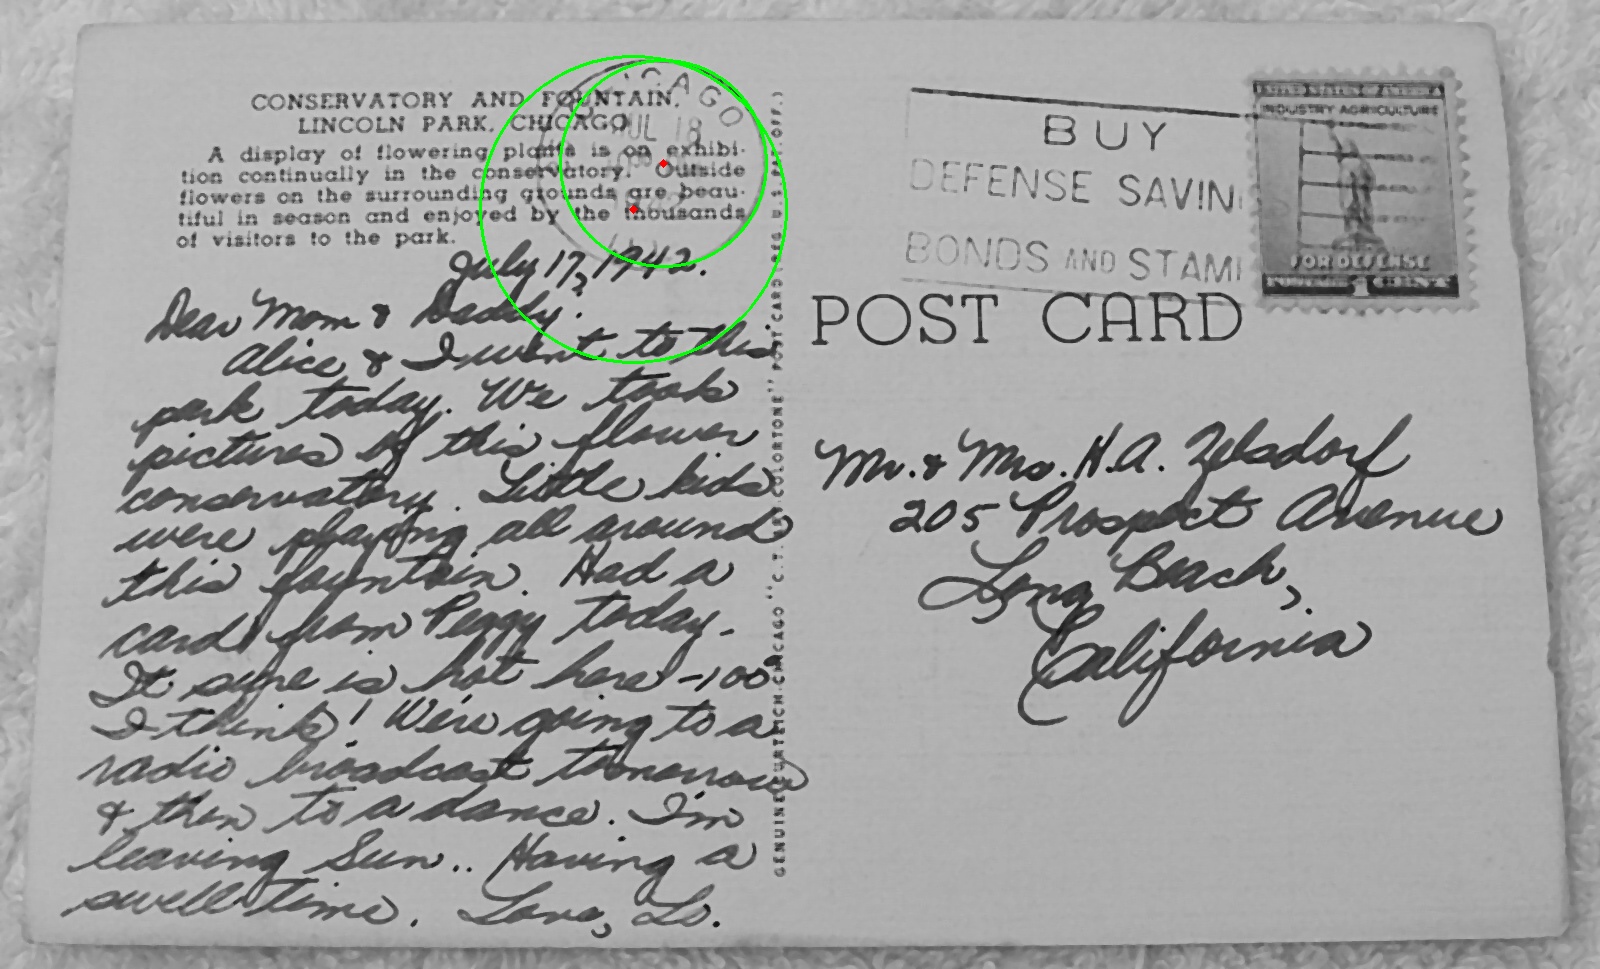 CONSERVATORY AND FOUNTAIN,
LINCOLN PARK, CHICAGO
A display of flowering plants is on exhibi-
tion continually in the conservatory. Outside
flowers on the surrounding grounds are beau-
tiful in season and enjoyed by the thousands
of visitors to the park.
CAGO
JUL 18
July 17, 1942.
Dear Mom & Daddy:
Alice & I went to this
park today. We took
pictures of this flower
conservatory. Little kids
were playing all around
this fountain. Had a
card from Peggy today.
It sure is hot here -100°
I think! We're going to a
radio broadcast tomorrow
& then to a dance. I'm
leaving Sun.. Having a
swell time. Love, Lo.
GENUINE CURTEICH-CHICAGO "C.T. ART-COLORTONE" POST CARD (REG. U.S. PAT. OFF.)
BUY
DEFENSE SAVIN
BONDS AND STAM
UNITED STATES OF AMERICA
INDUSTRY AGRICULTURE
FOR DEFENSE
1
POST CARD
Mr. & Mrs. H.A.
205 Prospect Avenue
Long Beach,
California